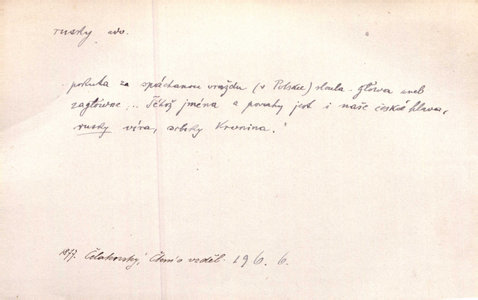 rusky adv.
pokuta za spáchanou vraždu (v Polsku) slula - głowa aneb
zagłówne... Téhož jména a povahy jest i naše české hlava,
rusky víra, srbsky Krvnina.'
1877. Čelakovský, Čten. o vzděl. 196. 6.